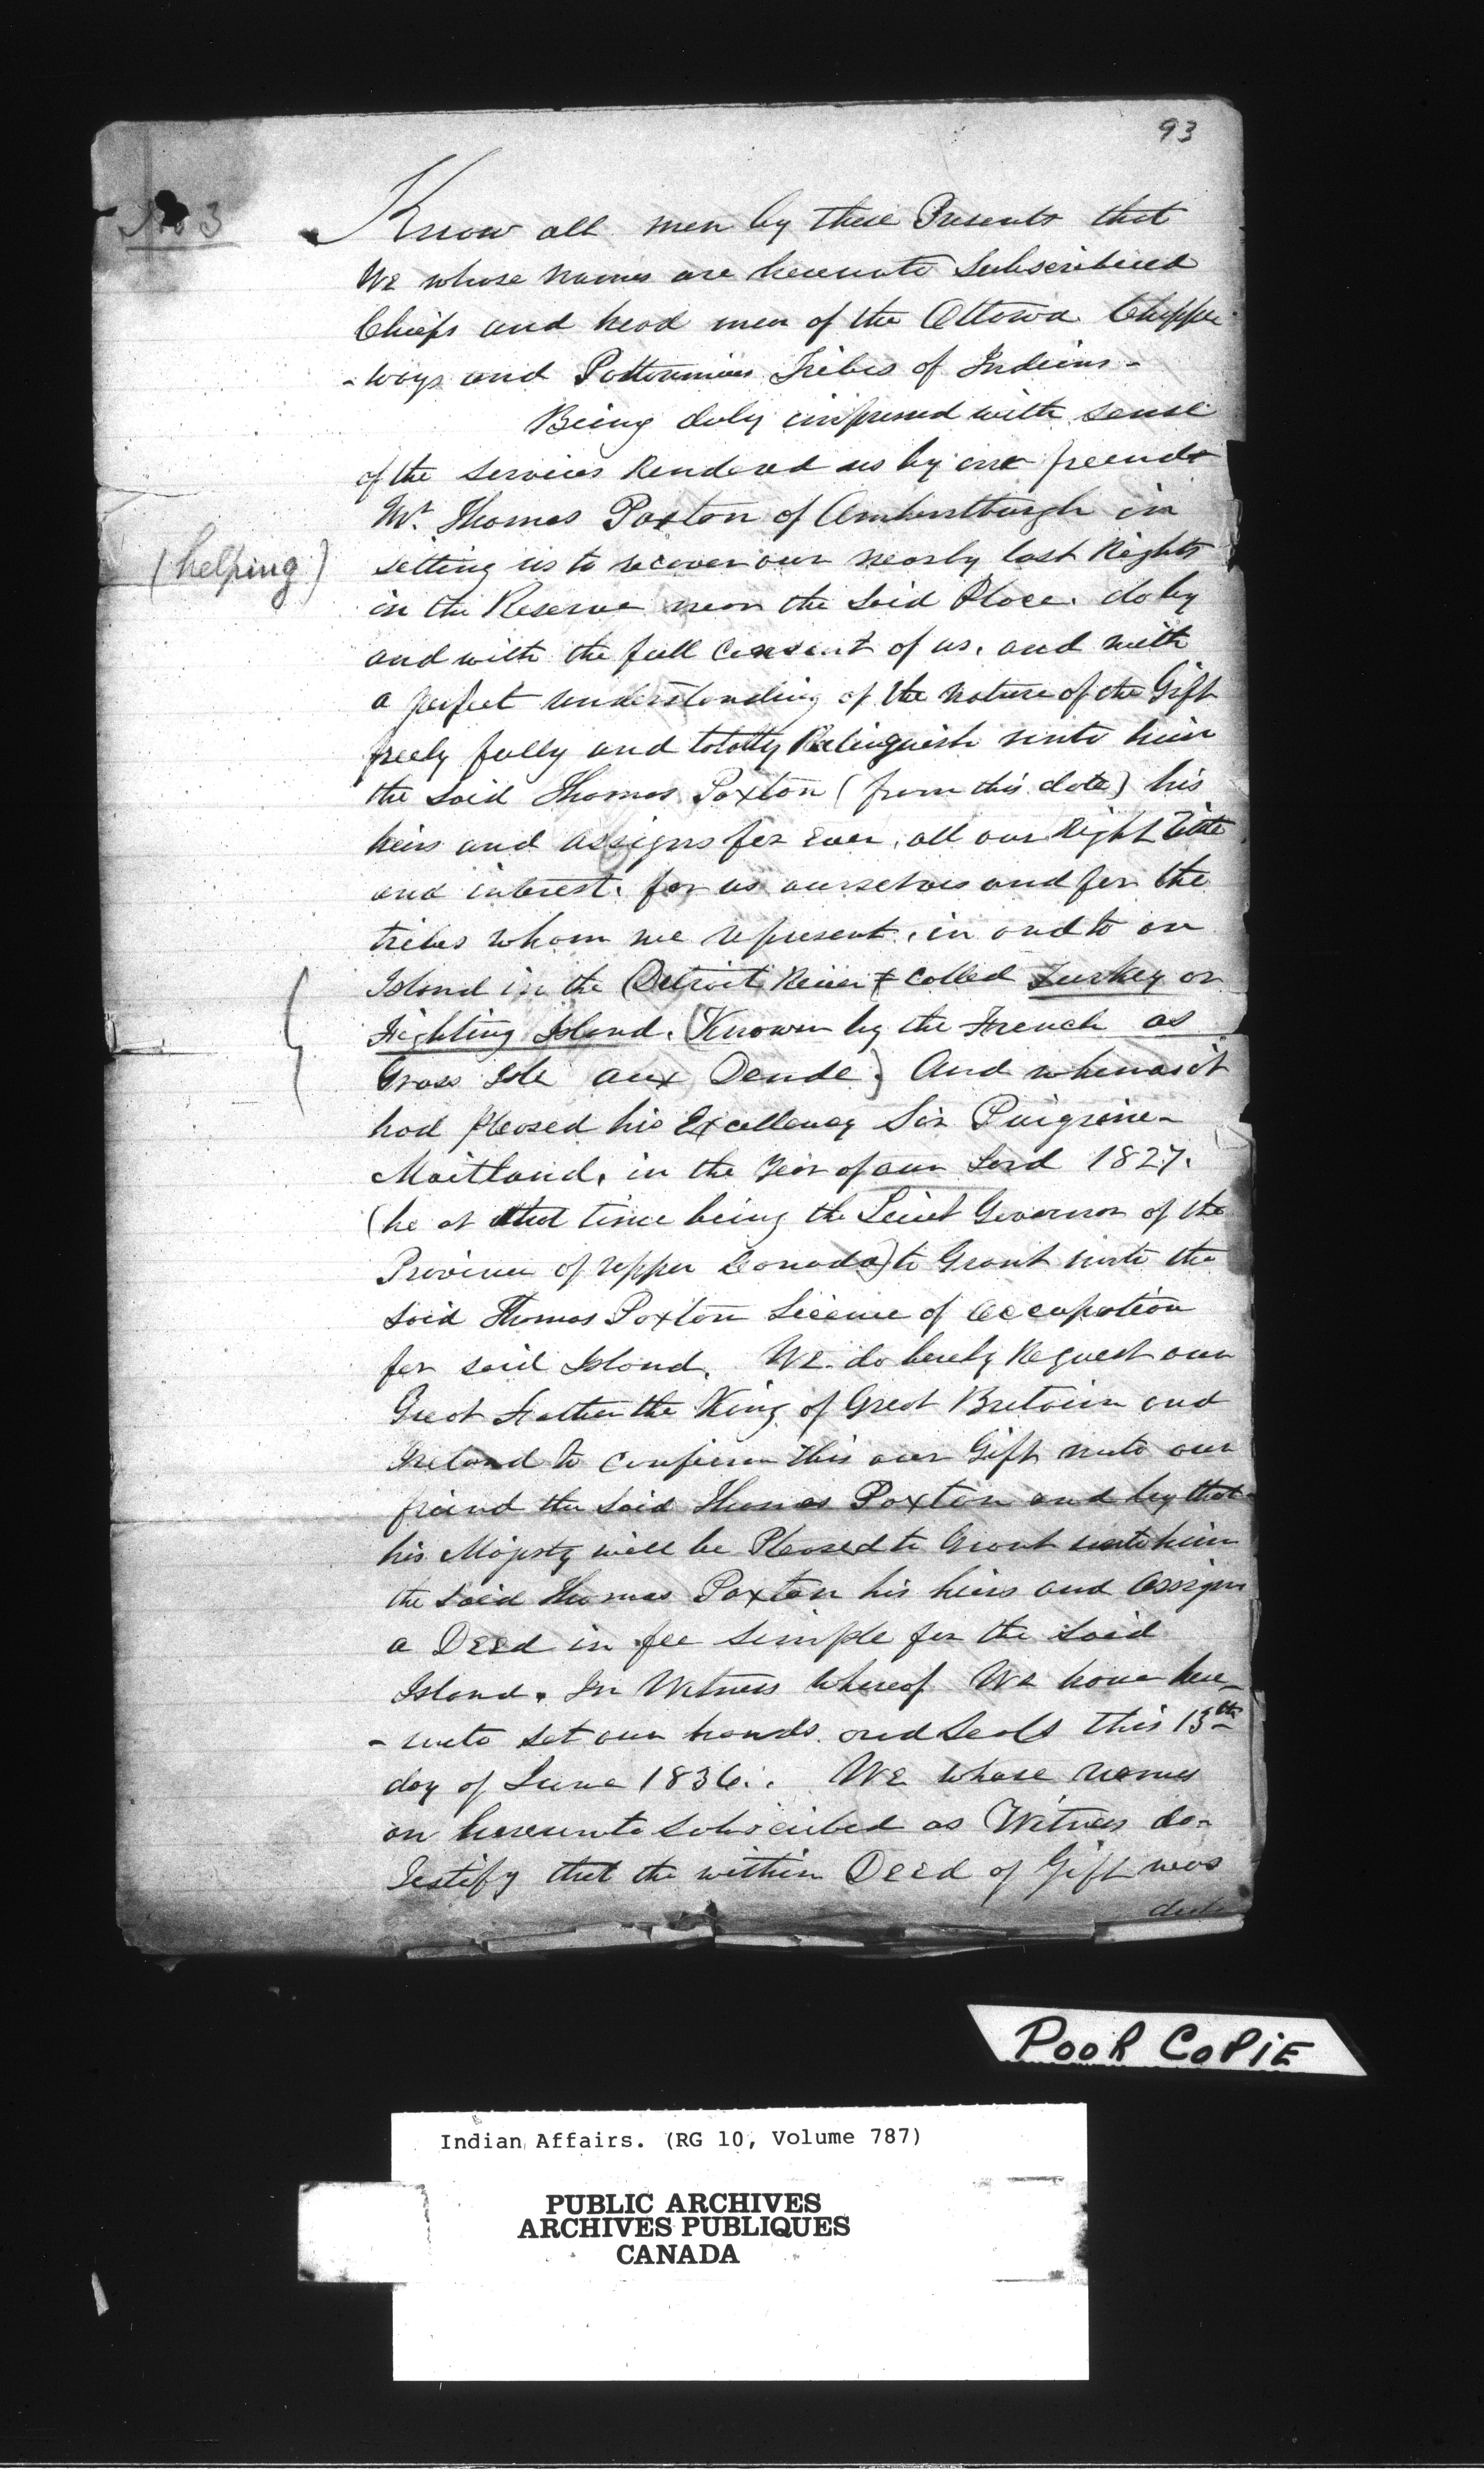 93
No 3
Know all men by these Presents that
We whose names are hereunto Subscribed
Chiefs and head men of the Ottowa Chippe
- ways and Pottowmies Tribes of Indians -
Being duly impressed with sense
of the services Rendered us by our friend
Mr. Thomas Paxton of Amherstburgh in
(helping)
setting us to recover our nearly lost Rights
in the Reserve near the Said Place. do by
and with the full Consent of us, and with
a perfect understanding of the nature of the Gift
freely fully and totally Relinquish unto him
the Said Thomas Paxton (from this date) his
heirs and assigns for ever, all our Right Title
and interest. for us ourselves and for the
tribes whom we represent, in and to an
Island in the Detroit River & called Turkey or
Fighting Island. (Known by the French as
Gross Isle aux Dende) And whereas it
had pleased his Excellency Sir Puigrine -
Maitland, in the Year of our Lord 1827.
(he at that time being the Lieut Governor of the
Province of Upper Canada) to Grant unto the
Said Thomas Paxton Licence of Occupation
for said Island. We do hereby Request our
Great Father the King of Great Britain and
Ireland to confirm this our Gift unto our
friend the Said Thomas Paxton and by that
his Majesty will be Pleased to Grant unto him
the Said Thomas Paxton his heirs and assigns
a Deed in fee Simple for the Said
Island. In Witness whereof We have here
- unto set our hands and Seals this 13th
day of June 1836. We whose names
are hereunto Subscribed as Witness do -
Testify that the within Deed of Gift was
POOR COPIE
Indian Affairs. (RG 10, Volume 787)
PUBLIC ARCHIVES
ARCHIVES PUBLIQUES
CANADA